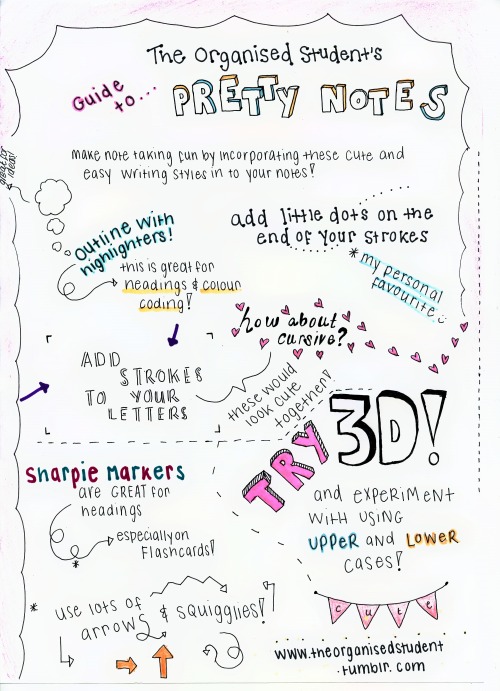 The Organised Student's
Guide to...
PRETTY NOTES
great for ideas!
make note taking fun by incorporating these cute and
easy writing styles in to your notes!
Outline with
highlighters!
this is great for
headings & colour
coding!
add little dots on the
end of your strokes
* my personal
favourite :)
how about
cursive?
ADD
STROKES
TO YOUR
LETTERS
these would
look cute
together!
TRY 3D!
Sharpie Markers
are GREAT for
headings
especially on
Flashcards!
*
and EXPERIMENT
WITH USING
UPPER and LOWER
CASES!
* use lots of
arrows & squigglies!
cute
www.theorganisedstudent
.tumblr.com